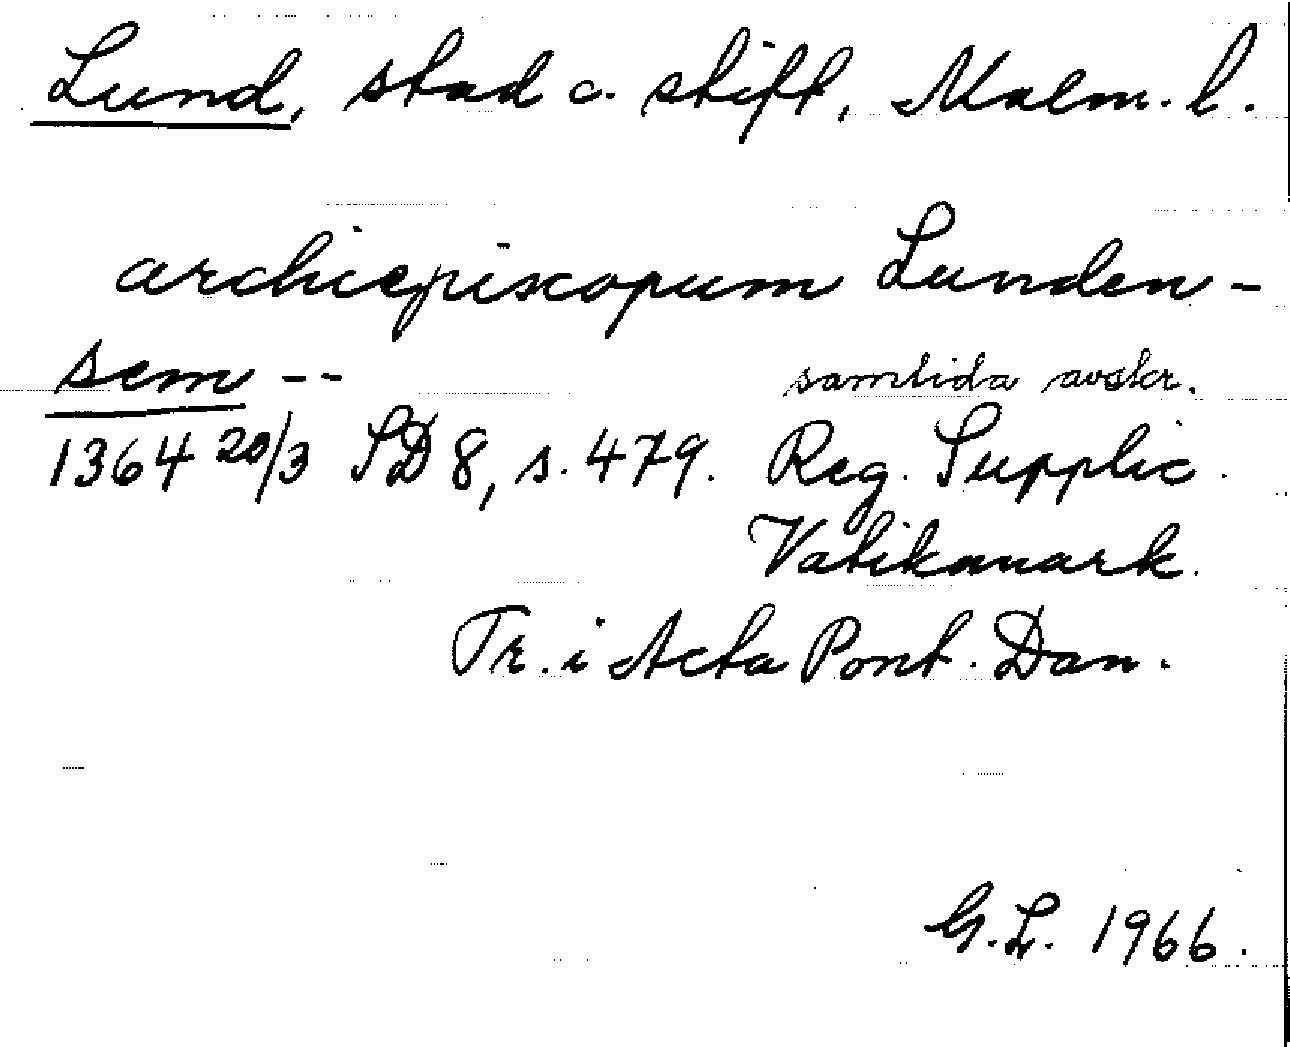 Lund, stad o. stift, Malm. l.
archiepiscopum Lunden-
sem --
samtida avskr.
1364 20/3 SD 8, s. 479. Reg. Supplic.
Vatikanark.
Tr. i Acta Pont. Dan.
G.L. 1966.